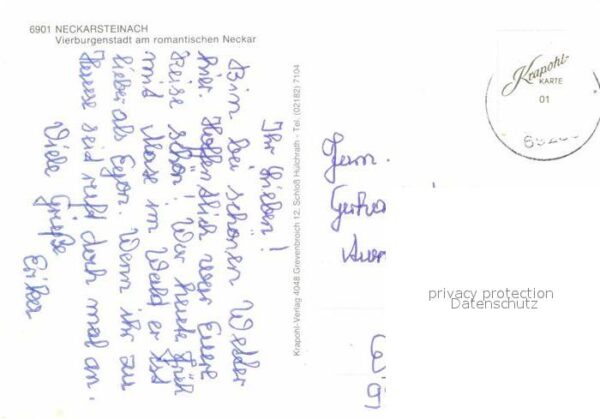 6901 NECKARSTEINACH
Vierburgenstadt am romantischen Neckar
Ihr Lieben!
Bin bei schönen Wetter
hier. Hoffentlich war Euere
Reise schön! War heute früh
mit Maxe im Wald er ist
lieber als Egon. Wenn ihr zu
Hause seid ruft doch mal an.
Viele Grüße
Erika
Krapohl-Verlag 4048 Grevenbroich 12, Schloß Hülchrath - Tel. (02182) 7104
Krapohl-
KARTE
01
Fam.
privacy protection
Datenschutz